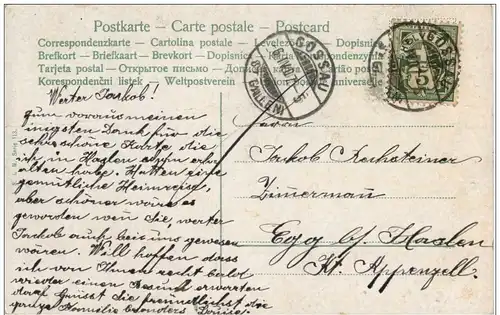 Postkarte – Carte postale – Postcard
Correspondenzkarte – Cartolina postale – Levelez Dopisnice
Brefkort – Briefkaart – Brevkort – Dopisnica
Tarjeta postal – Открытое письмо – Дописна
Korespondenční listek – Weltpostverein – Union postale universelle
GOSSAU
(ST. GALLEN)
GOSSAU
5
Werter Jakob!
Zum voraus meinen
innigsten Dank für die
schöne Karte die
ich in Haslen
halten habe. Hatten eine
gemütliche Heimreise,
aber schöner wäre es
geworden wenn Sie, werter
Jakob auch bei uns gewesen
wären. Will hoffen dass
ich von Ihnen recht bald
wieder einen Besuch erwarten
darf. Grüsst Sie freundlichst die
ganze Familie besonders Louise.
Herrn
Jakob Rechsteiner
Zimmerman
Egg b/ Haslen
Kt. Appenzell.